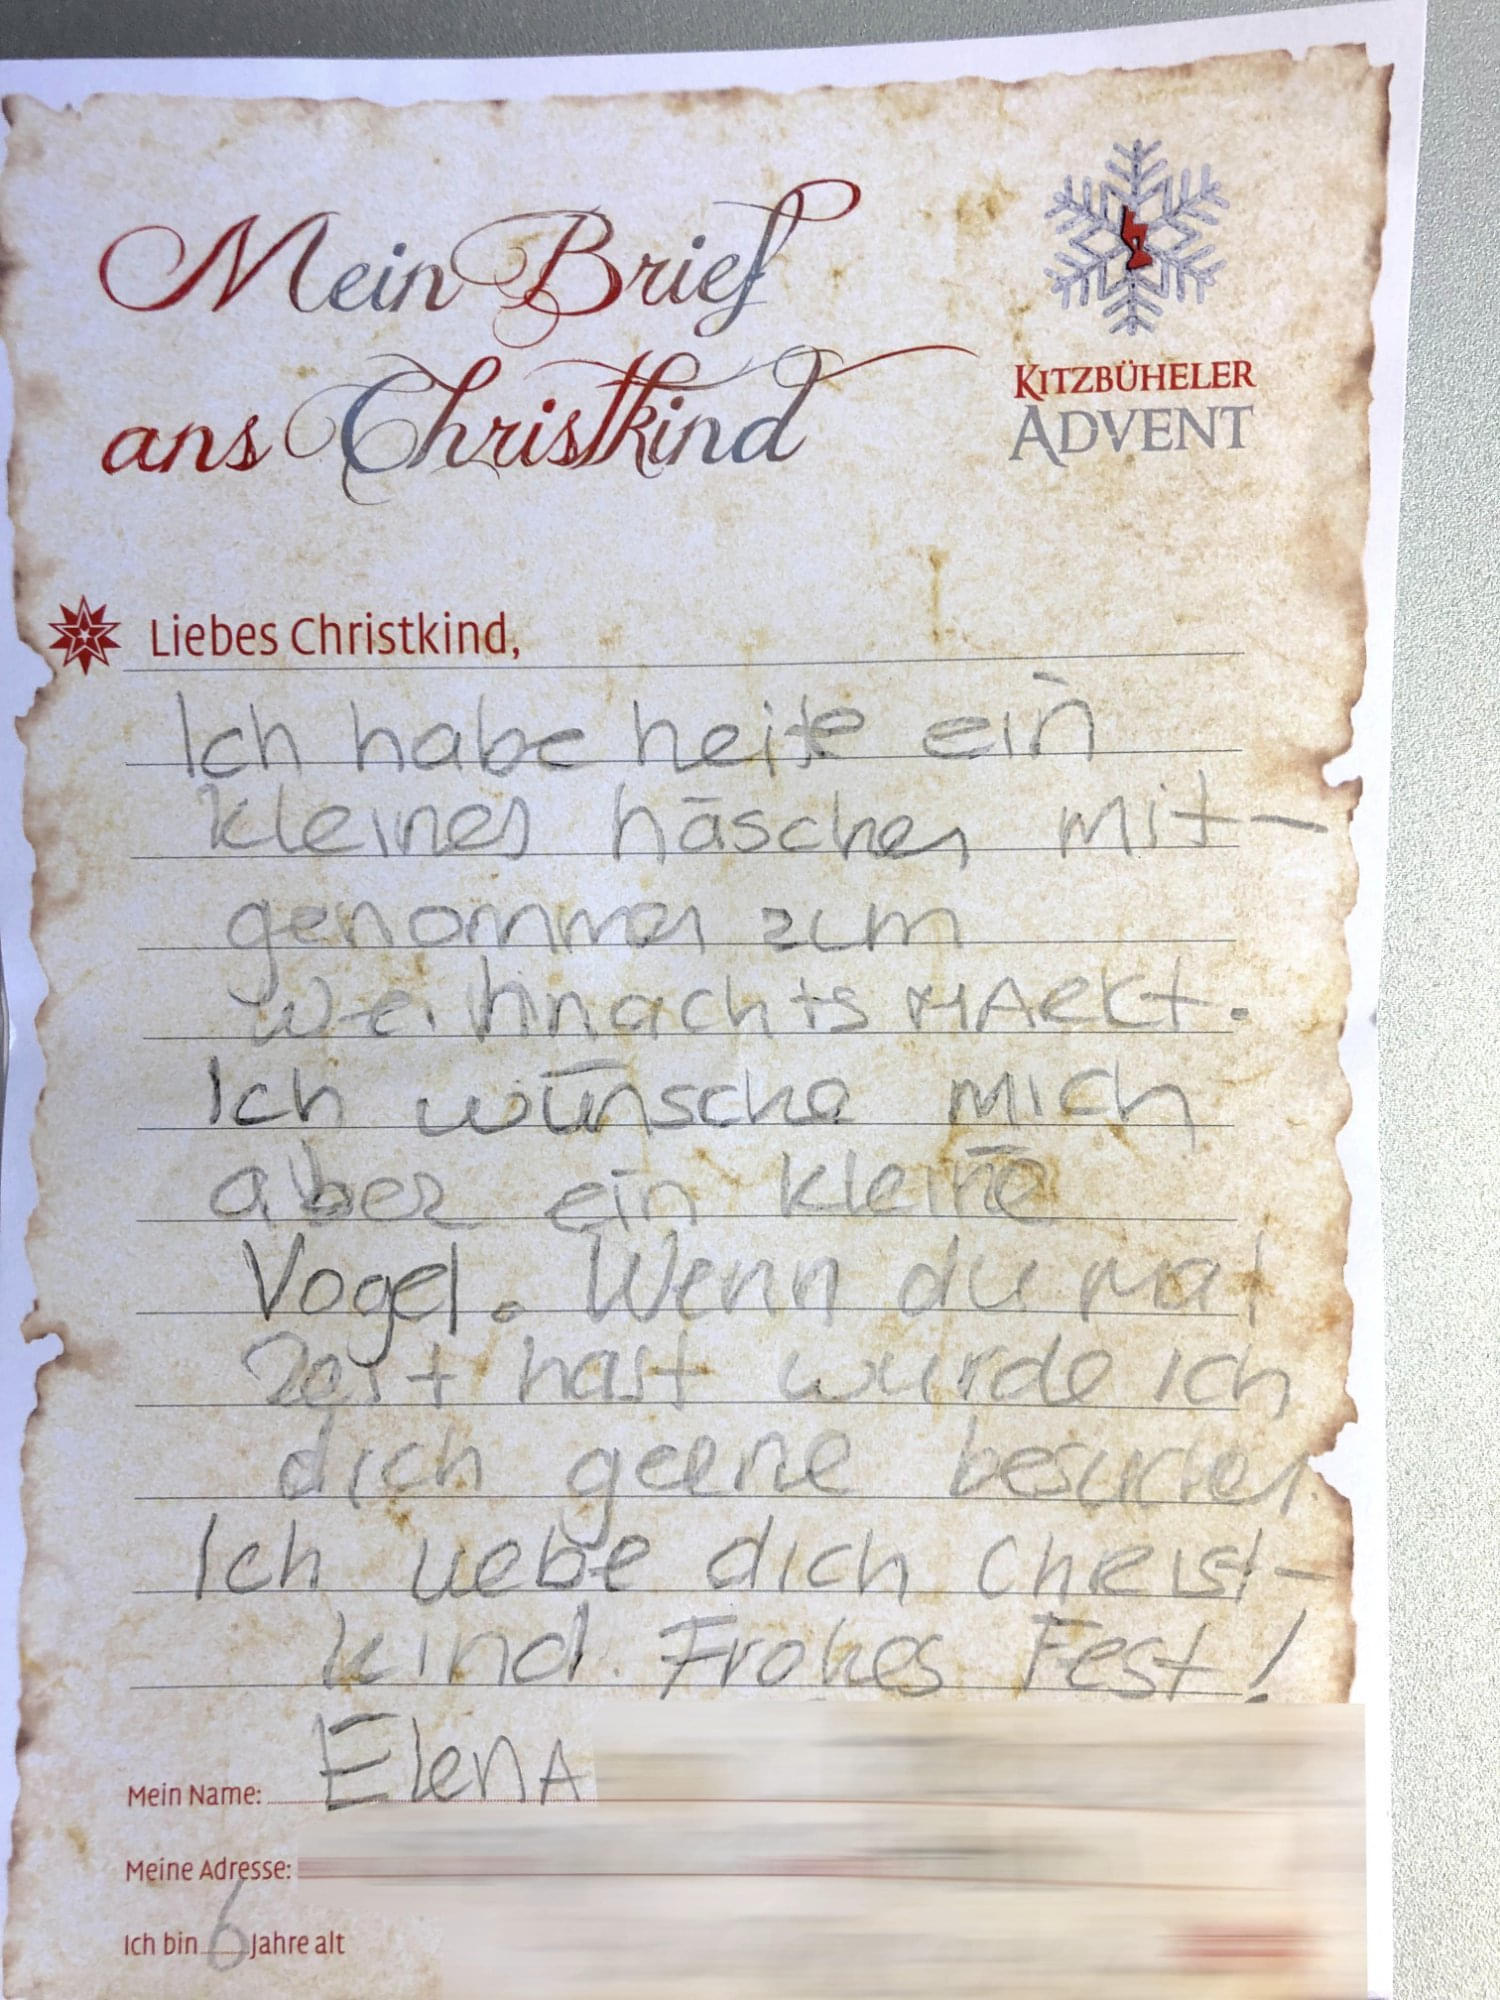 Mein Brief
ans Christkind
KITZBÜHELER
ADVENT
Liebes Christkind,
Ich habe heite ein
kleines häschen mit-
genommen zum
weihnachtsMARKt.
Ich wünsche mich
aber ein kleine
Vogel. Wenn du mal
Zeit hast wurde ich
dich geRne besuchen.
Ich liebe dich ChRist-
kind. Frohes Fest!
Mein Name: ElenA
Meine Adresse:
Ich bin 6 Jahre alt